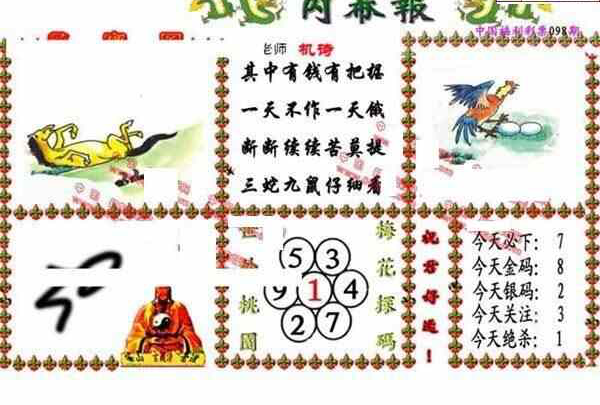 内幕報
中国福利彩票098期
老师 机诗
其中有钱有把握
一天不作一天饿
断断续续苦莫提
三蛇九鼠仔细看
桃園
梅花探码
5 3
9 1 4
2 7
祝君好运！
今天必下：7
今天金码：8
今天银码：2
今天关注：3
今天绝杀：1